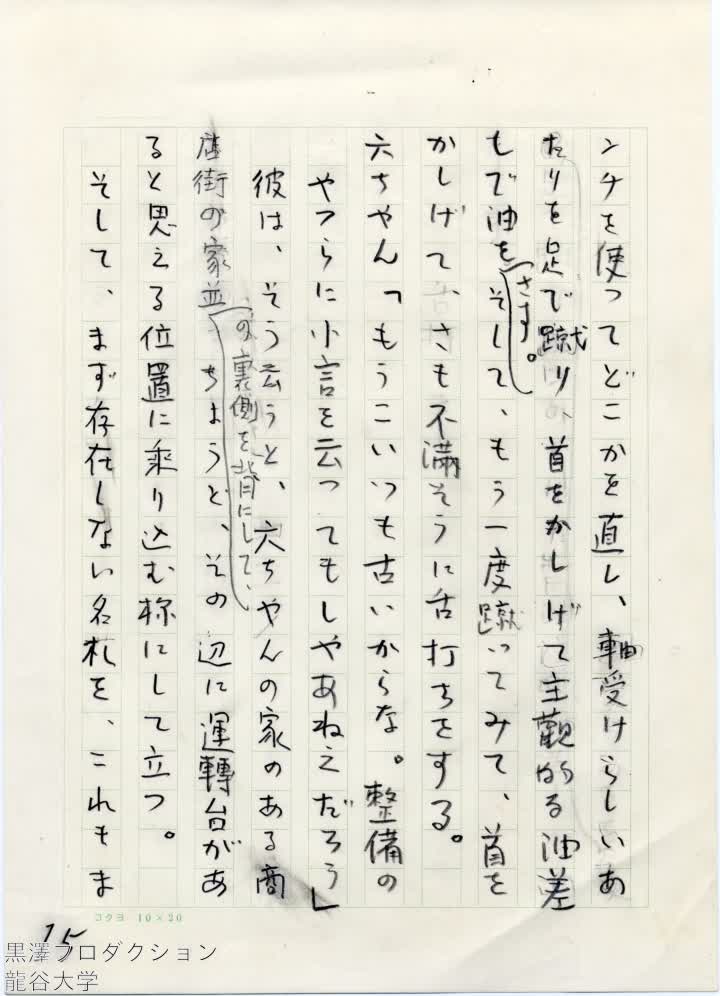 ンチを使ってどこかを直し、軸受けらしいあ
たりを足で蹴り、首をかしげて主観的る油差
もで油をさす。そして、もう一度蹴ってみて、首を
かしげて、さも不満そうに舌打ちをする。
六ちゃん「もうこいつも古いからな。整備の
やつらに小言を云ってもしゃあねえだろう」
彼は、そう云うと、六ちゃんの家のある商
店街の家並の裏側を背にして、ちょうど、その辺に運轉台があ
ると思える位置に乗り込む様にして立つ。
そして、まず存在しない名札を、これもま
コクヨ 10×20
15
黒澤プロダクション
龍谷大学